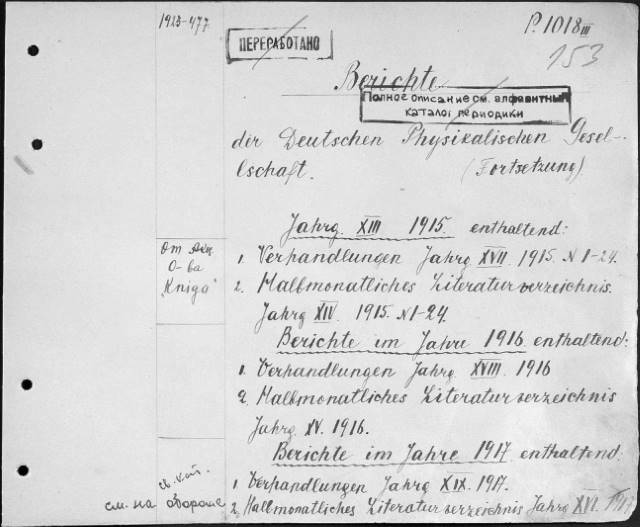 1923-477
P. 1018 III
ПЕРЕРАБОТАНО
153
Berichte
Полное описание см. алфавитный
каталог периодики
der Deutschen Physikalischen Gesel-
lschaft. (Fortsetzung)
Jahrg. XIII 1915. enthaltend:
От Акц.
О-ва
"Kniga"
1. Verhandlungen Jahrg XVII. 1915. N 1-24.
2. Halbmonatliches Literaturverzeichnis.
Jahrg XIV. 1915. N 1-24.
Berichte im Jahre 1916 enthaltend:
1. Verhandlungen Jahrg. XVIII. 1916
2. Halbmonatliches Literaturverzeichnis
Jahrg. XV. 1916.
Berichte im Jahre 1917 enthaltend
1 Verhandlungen Jahrg XIX. 1917.
2. Halbmonatliches Literaturverzeichnis Jahrg XVI. 1917
см. на обороте